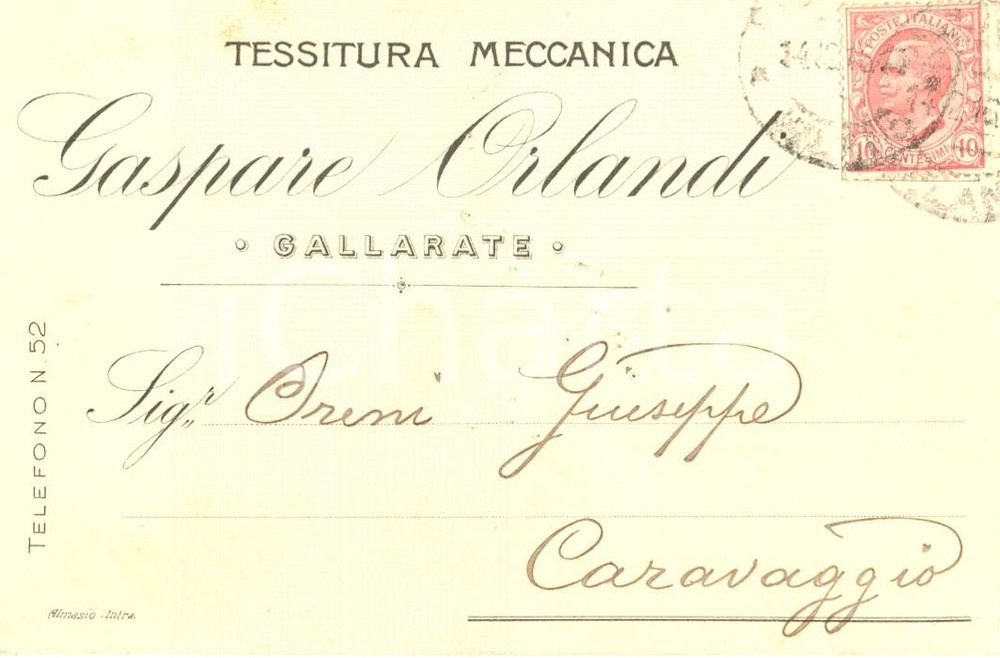 TESSITURA MECCANICA
POSTE ITALIANE
10 CENTESIMI 10
Gaspare Orlandi
• GALLARATE •
iCharta
TELEFONO N. 52
Sigr„ Oreni Giuseppe
Caravaggio
Almasio - Intra.